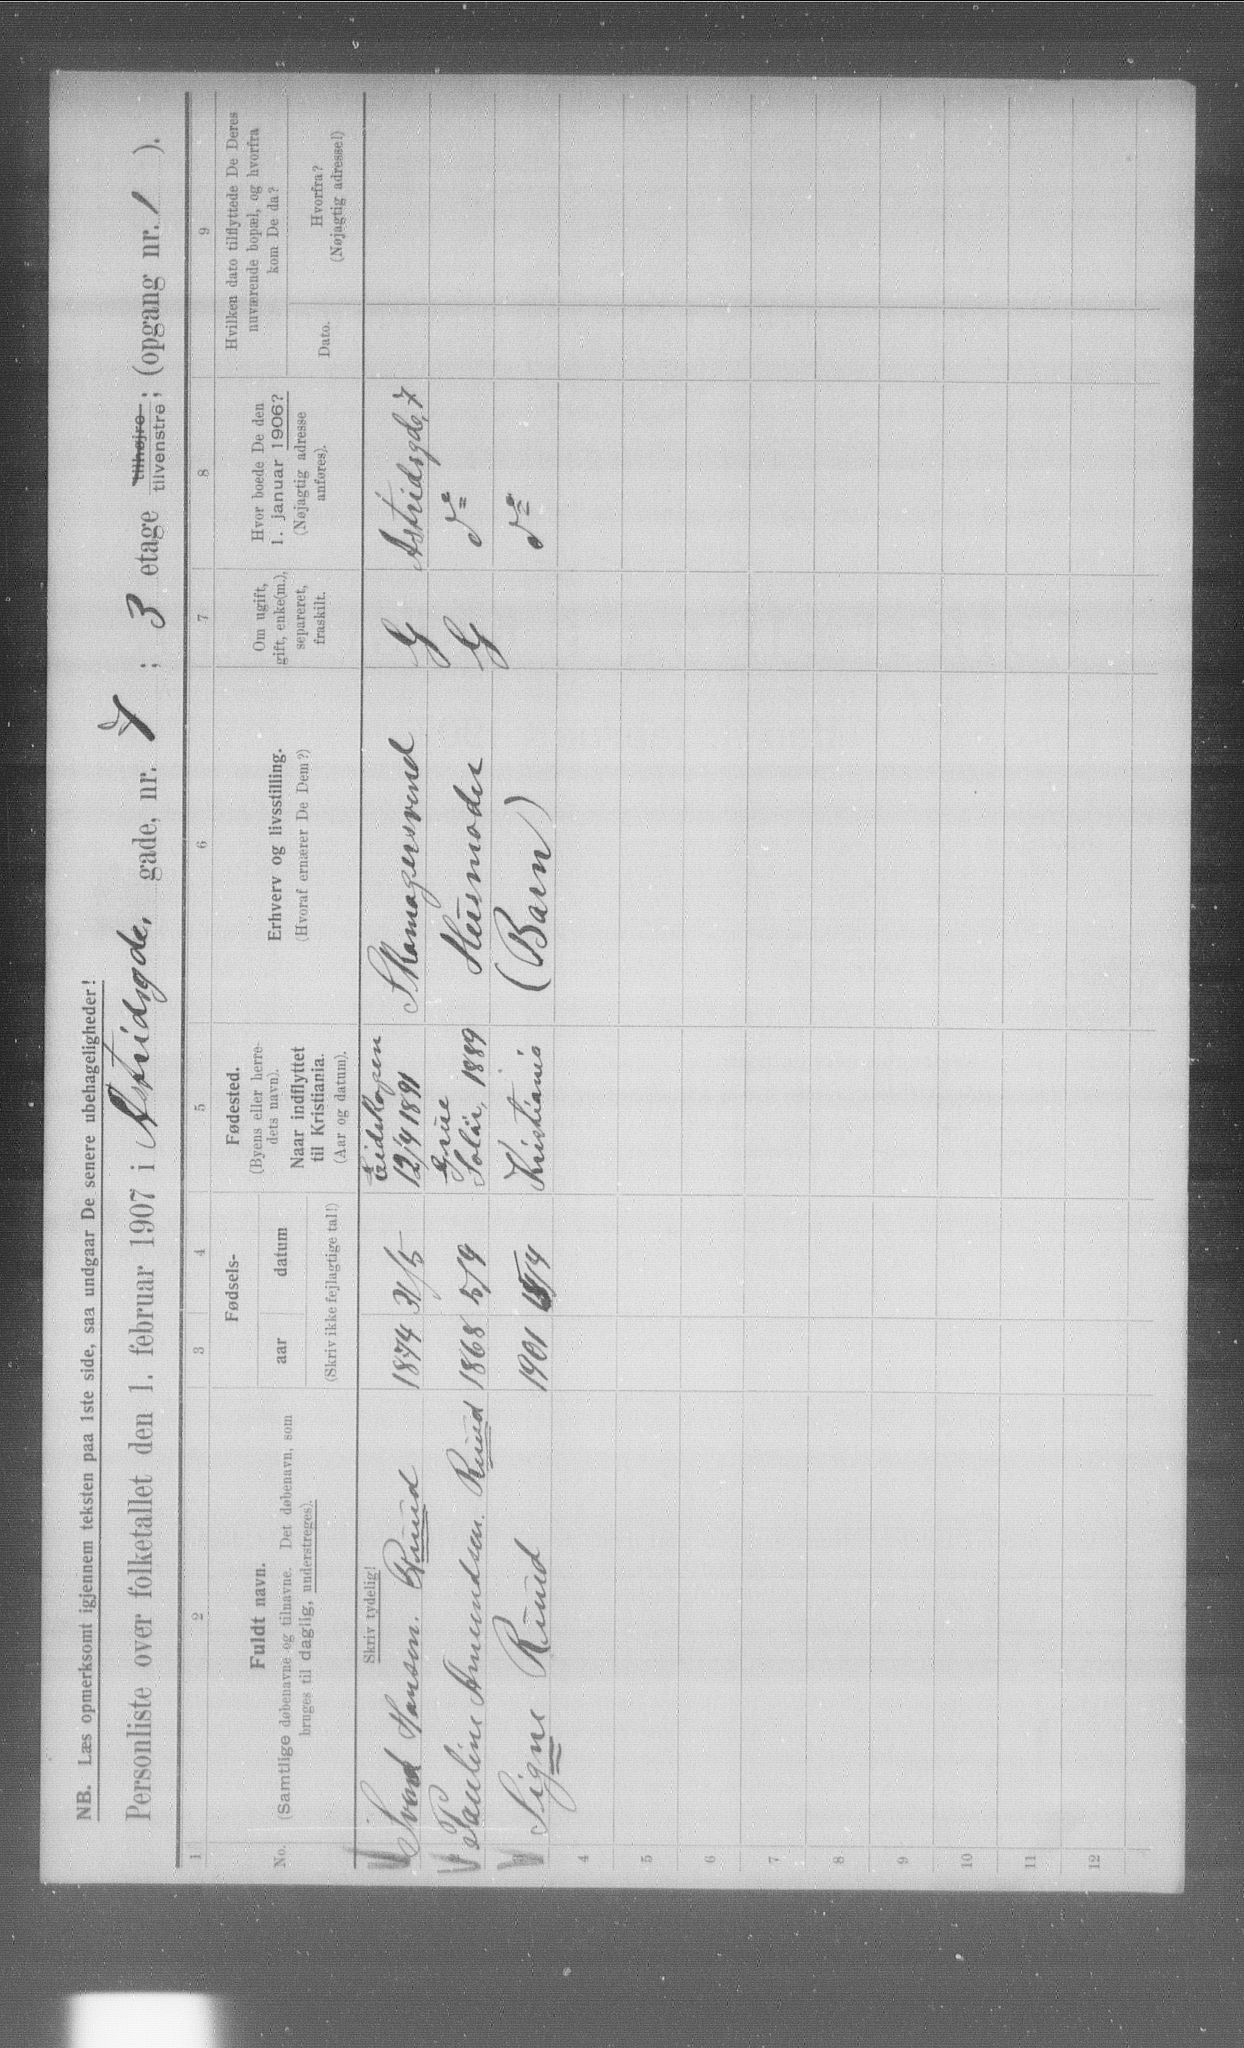 NB. Læs opmerksomt igjennem teksten paa 1ste side, saa undgaar De senere ubehageligheder!
Personliste over folketallet den 1. februar 1907 i Astridsgde, gade, nr. 7 ; 3 etage tilhøjre tilvenstre; (opgang nr. 1 ).
1 2 3 4 5 6 7 8 9
No.
Fuldt navn.
(Samtlige døbenavne og tilnavne. Det døbenavn, som
bruges til daglig, understreges).
Fødsels-
aar datum
(Skriv ikke fejlagtige tal!)
Fødested.
(Byens eller herre-
dets navn).
Naar indflyttet
til Kristiania.
(Aar og datum).
Erhverv og livsstilling.
(Hvoraf ernærer De Dem?)
Om ugift,
gift, enke(m.),
separeret,
fraskilt.
Hvor boede De den
1. januar 1906?
(Nøjagtig adresse
anføres).
Hvilken dato tilflyttede De Deres
nuværende bopæl, og hvorfra
kom De da?
Dato.
Hvorfra?
(Nøjagtig adresse!)
Skriv tydelig!
Svend Hansen. Ruud 1874 31/5 Eidskogen 12/4 1891 Skomagersvend G Astridsgde, 7
Pauline Amundsen. Ruud 1868 5/9 Grue Solør, 1889 Husmoder G do
3 Signe Ruud 1901 /4 Kristiania (Barn) do
4
5
6
7
8
9
10
11
12